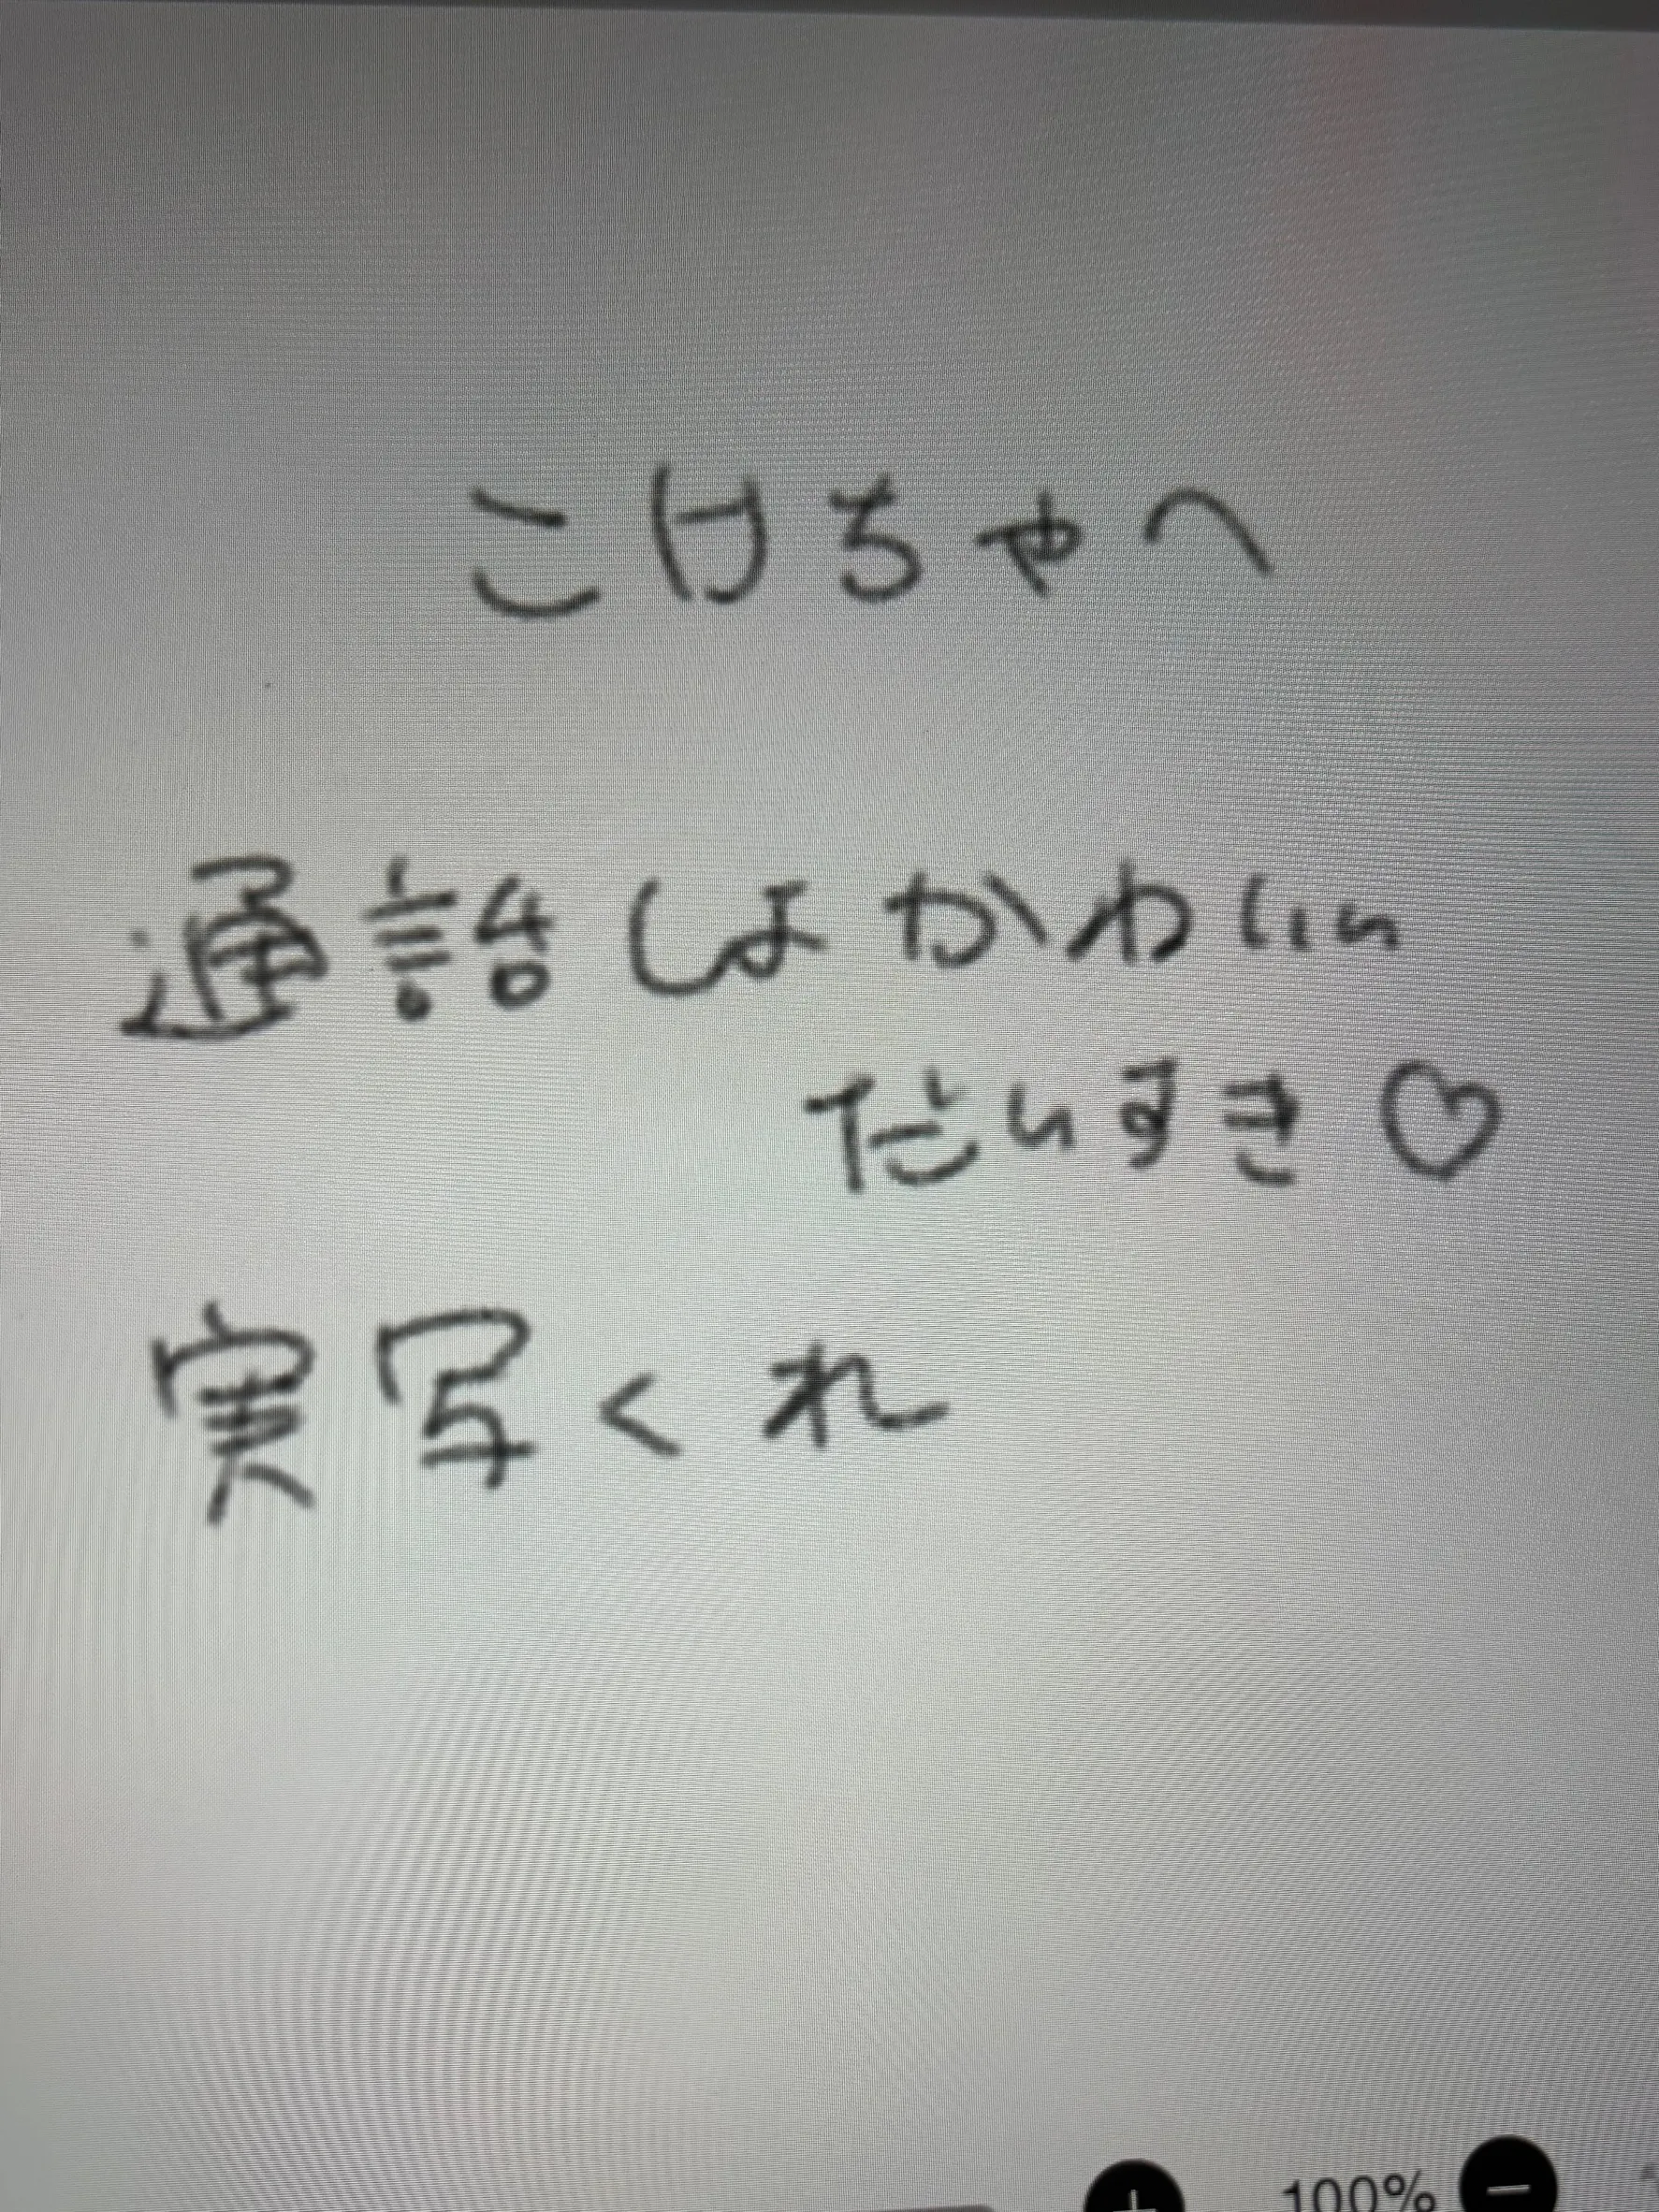 こけちゃへ
通話しよかわいい
だいすき♡
実写くれ
100%